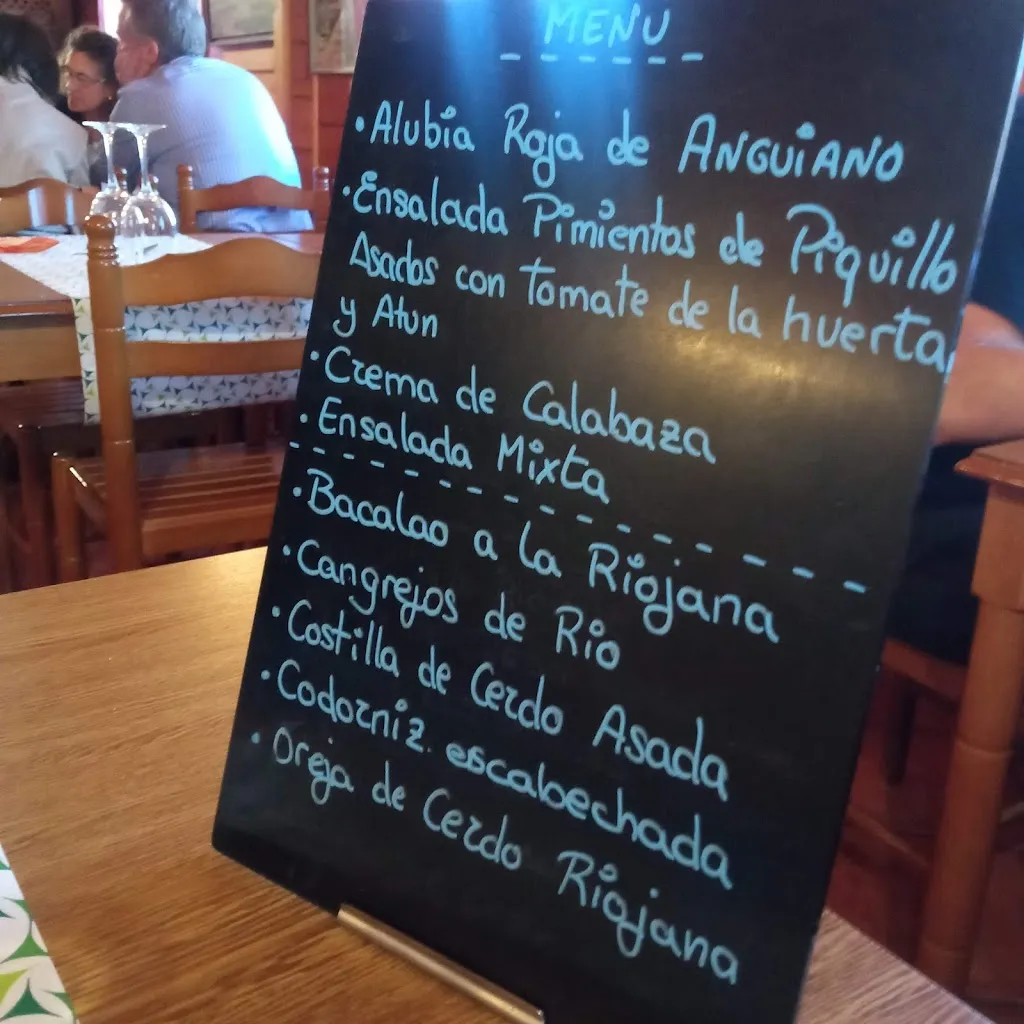 MENU
• Alubia Roja de ANGUIANO
• Ensalada Pimientos de Piquillo
Asados con tomate de la huerta
y Atun
• Crema de Calabaza
• Ensalada Mixta
• Bacalao a la Riojana
• Cangrejos de Rio
• Costilla de Cerdo Asada
• Codorniz escabechada
• Oreja de Cerdo Riojana